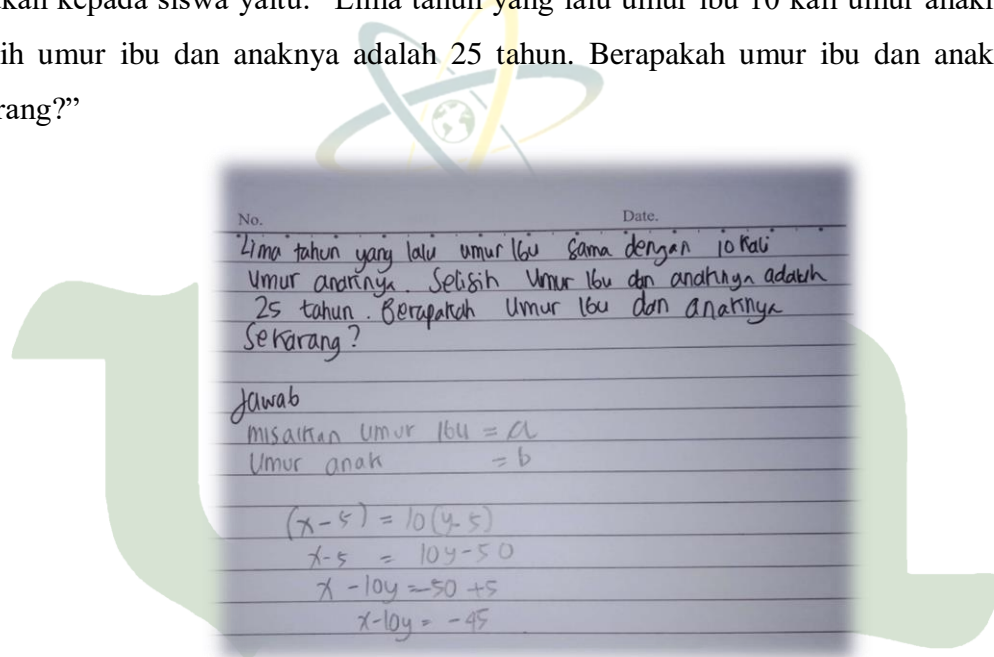 akan kepada siswa yaitu: “Lima tahun yang lalu umur ibu 10 kali umur anakn
ih umur ibu dan anaknya adalah 25 tahun. Berapakah umur ibu dan anak
rang?”
No. Date.
Lima tahun yang lalu umur Ibu sama dengan 10 kali
Umur anaknya. Selisih Umur Ibu dan anaknya adalah
25 tahun. Berapakah Umur Ibu dan anaknya
Sekarang?
Jawab
misalkan Umur Ibu = a
Umur anak = b
(x-5) = 10(y-5)
x-5 = 10y-50
x -10y = -50 +5
x-10y = -45